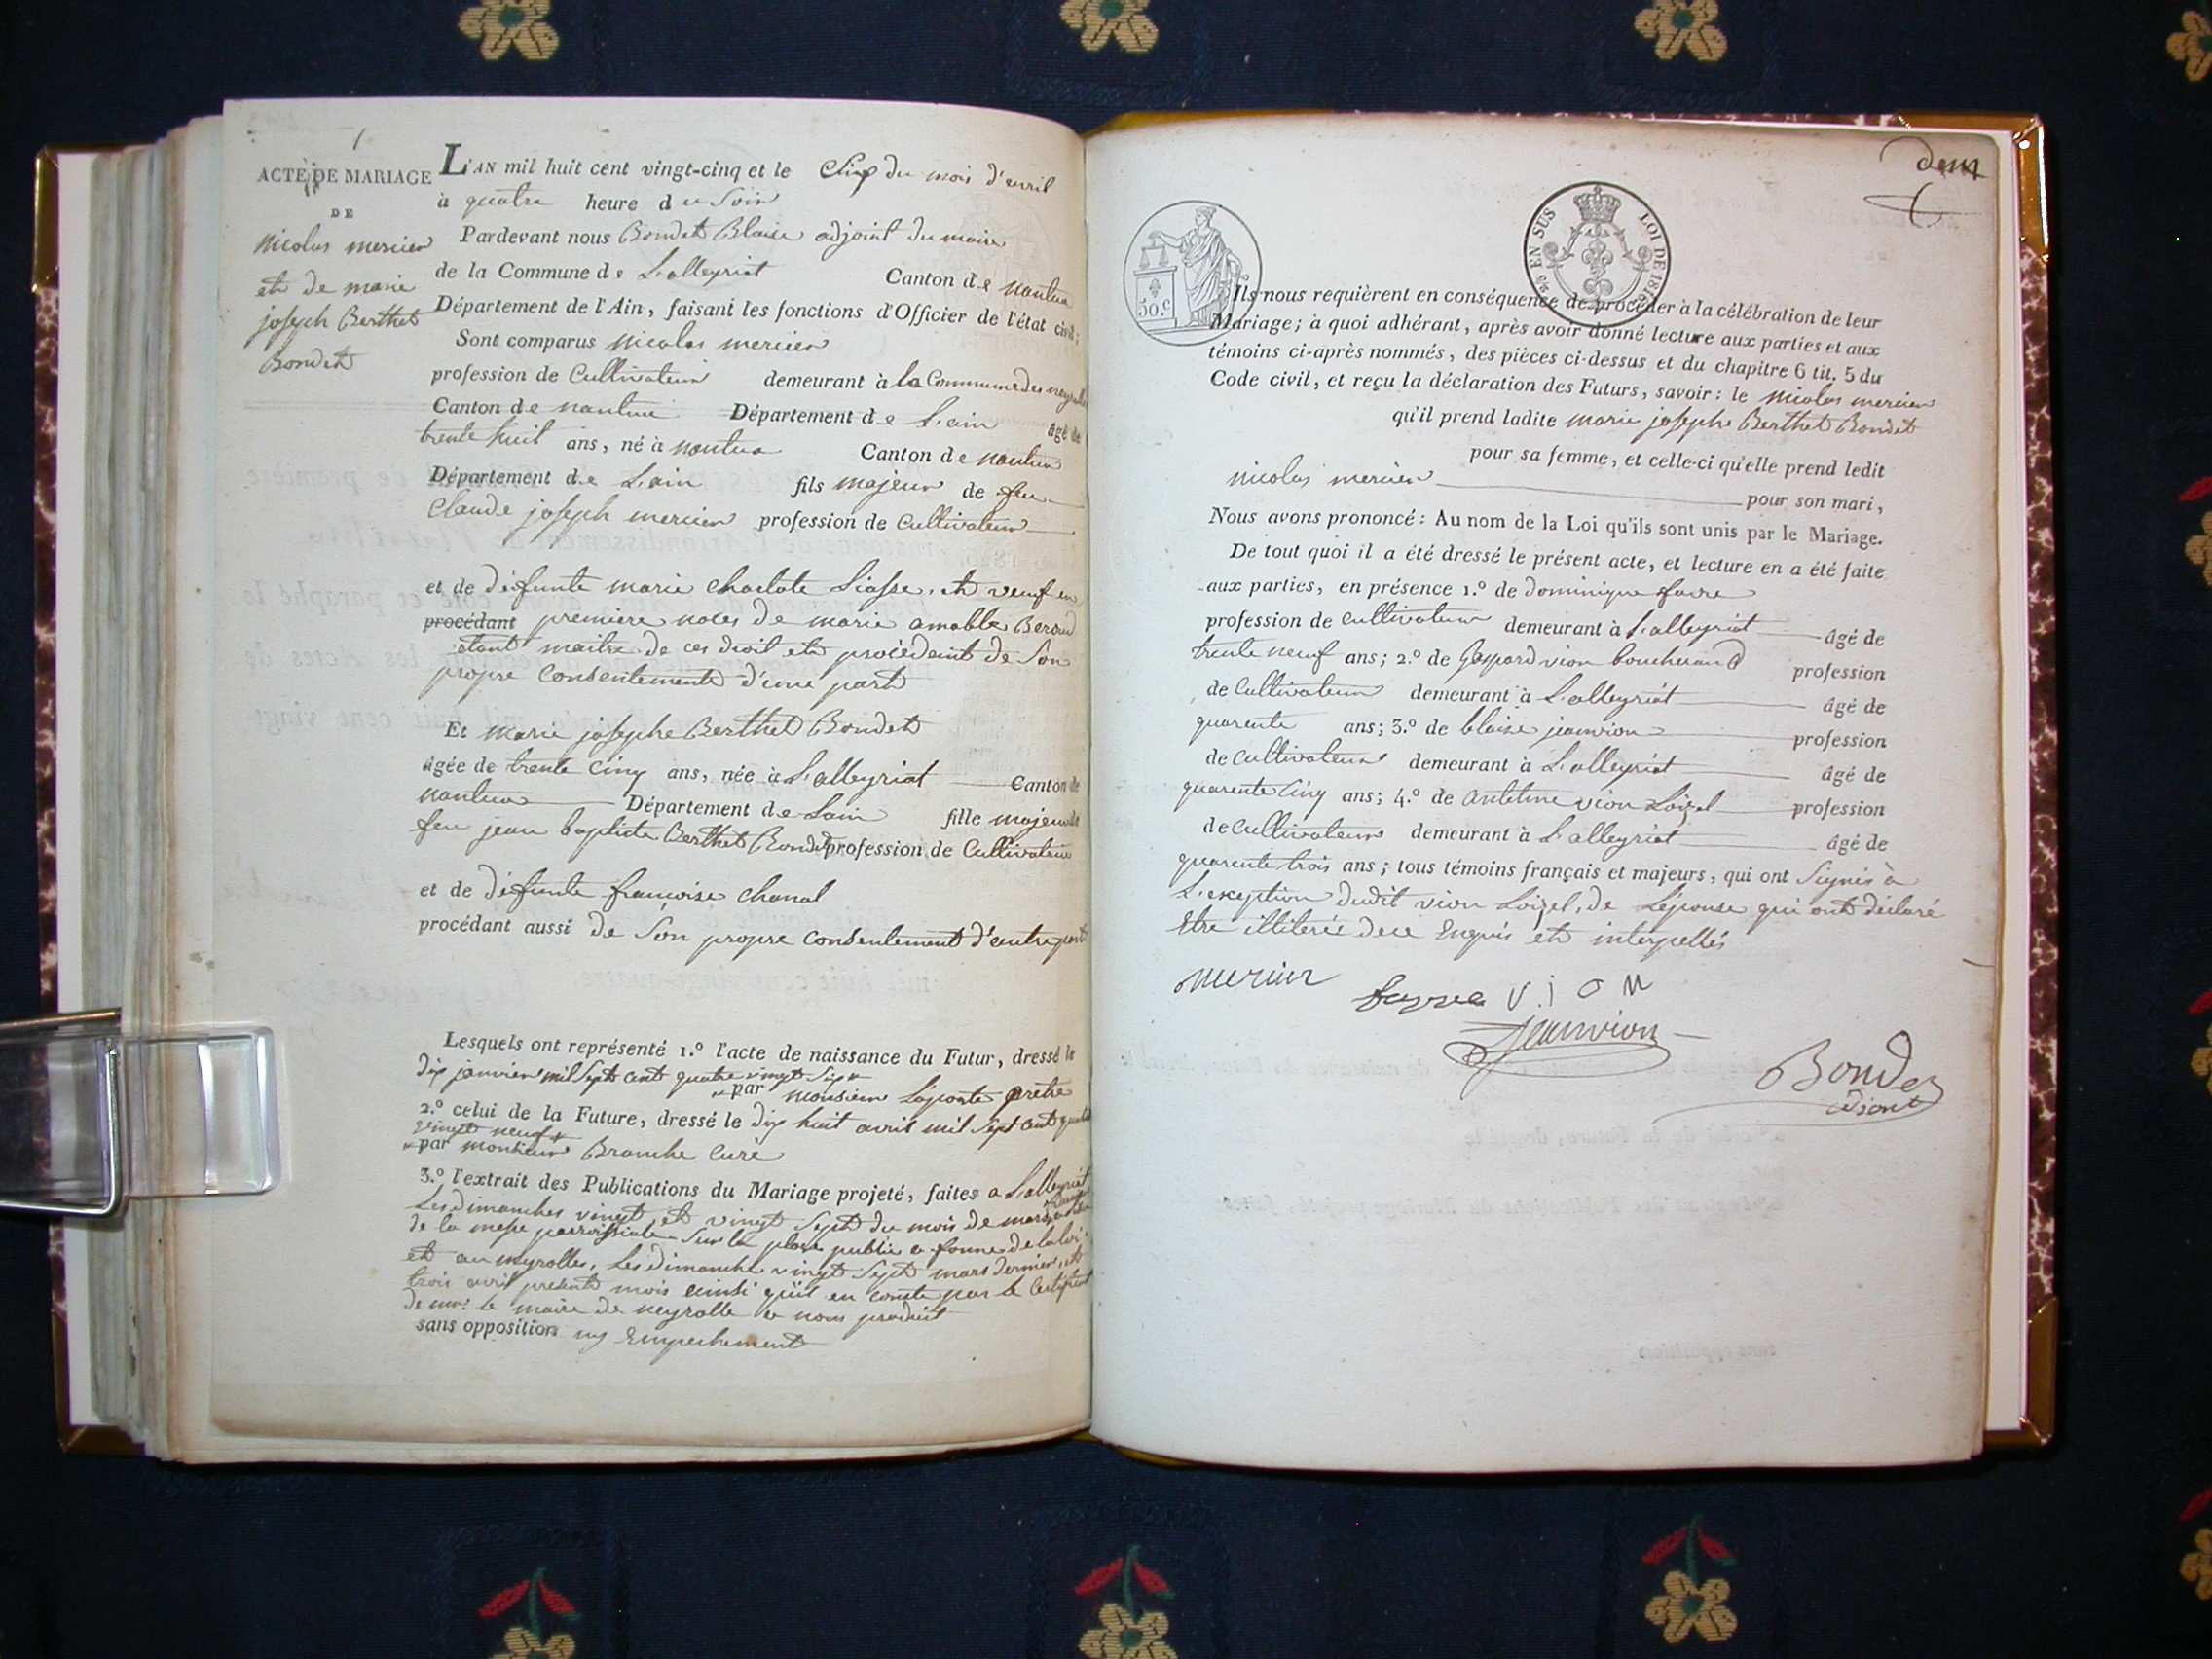 1
ACTE DE MARIAGE
DE
nicolas mercier
et de marie
joseph Berthet
Bondet
L'AN mil huit cent vingt-cinq et le cinq du mois d'avril
à quatre heure du Soir
Pardevant nous Bondet Blaise adjoint du maire
de la Commune de Lalleyriat Canton de nantua
Département de l'Ain, faisant les fonctions d'Officier de l'état civil;
Sont comparus nicolas mercier
profession de Cultivateur demeurant à la Commune des neyrolles
Canton de nantua Département de L'ain âgé de
trente huit ans, né à nantua Canton de nantua
Département de L'ain fils majeur de feu
Claude joseph mercier profession de Cultivateur
et de défunte marie charlote et veuf en
procédant premiere noces de marie amable Beroud
étant maitre de ces droit et procédant de Son
propre Consentement d'une part
Et marie josephe Berthet Bondet
âgée de trente cinq ans, née à Lalleyriat Canton de
nantua Département de Lain fille majeure de
feu jean baptiste Berthet Bondet profession de Cultivateur
et de défunte francoise chanal
procédant aussi de Son propre consentement d'autre part
Lesquels ont représenté 1.º l'acte de naissance du Futur, dressé le
dix janvier mil Sept cent quatre vingt Sept
par monsieur Laporte pretre
2.º celui de la Future, dressé le dix huit avril mil Sept cent quatre
vingt neuf
par monsieur Branche Curé
3.º l'extrait des Publications du Mariage projeté, faites a Lalleyriat
Les dimanches vingt et vingt Sept du mois de mars
de la messe parroissiale Sur la place public a forme de la loi
et au neyrolles, Les dimanche vingt Sept mars dernier et
trois avril present mois ainsi qu'il en conste par le Certificat
de mr le maire de neyrolle a nous produit
sans opposition ny Empechement
deux
50.c
EN SUS LOI DE 1816
Ils nous requièrent en conséquence de procéder à la célébration de leur
Mariage; à quoi adhérant, après avoir donné lecture aux parties et aux
témoins ci-après nommés, des pièces ci-dessus et du chapitre 6 tit. 5 du
Code civil, et reçu la déclaration des Futurs, savoir: le nicolas mercier
qu'il prend ladite marie josephe Berthet Bondet
pour sa femme, et celle-ci qu'elle prend ledit
nicolas mercier pour son mari,
Nous avons prononcé: Au nom de la Loi qu'ils sont unis par le Mariage.
De tout quoi il a été dressé le présent acte, et lecture en a été faite
aux parties, en présence 1.º de dominique favre
profession de cultivateur demeurant à Lalleyriat âgé de
trente neuf ans; 2.º de Gaspard vion profession
de Cultivateur demeurant à Lalleyriat âgé de
quarente ans; 3.º de blaise jeanvion profession
de Cultivateur demeurant à Lalleyriat âgé de
quarente Cinq ans; 4.º de antelme vion Loizel profession
de Cultivateur demeurant à Lalleyriat âgé de
quarente trois ans; tous témoins français et majeurs, qui ont Signés à
L'exception dudit vion Loizel, de Lépouse qui ont déclaré
Etre illiterés de ce Enquis et interpellés
mercier
favre V.ION
jeanvion
Bondet
adjont